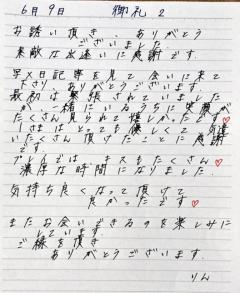 6月9日 御礼2
お誘い頂き、ありがとう
ございました
素敵な出逢いに感謝です。
写メ日記等を見て会いに来て
下さり、ありがとう
最初は緊張されていました
が一緒にいるうちに笑顔が
たくさん見られて嬉しかったです♡
さまはとっても優しくて
頂けたことに感謝
です。
プレイでは、キスもたくさん♡
濃厚な時間になりました。
気持ち良くなって頂けて
良かったです♡
またお会いできるのを楽しみに
しています
ご縁を頂き
ありがとうございます。
りん